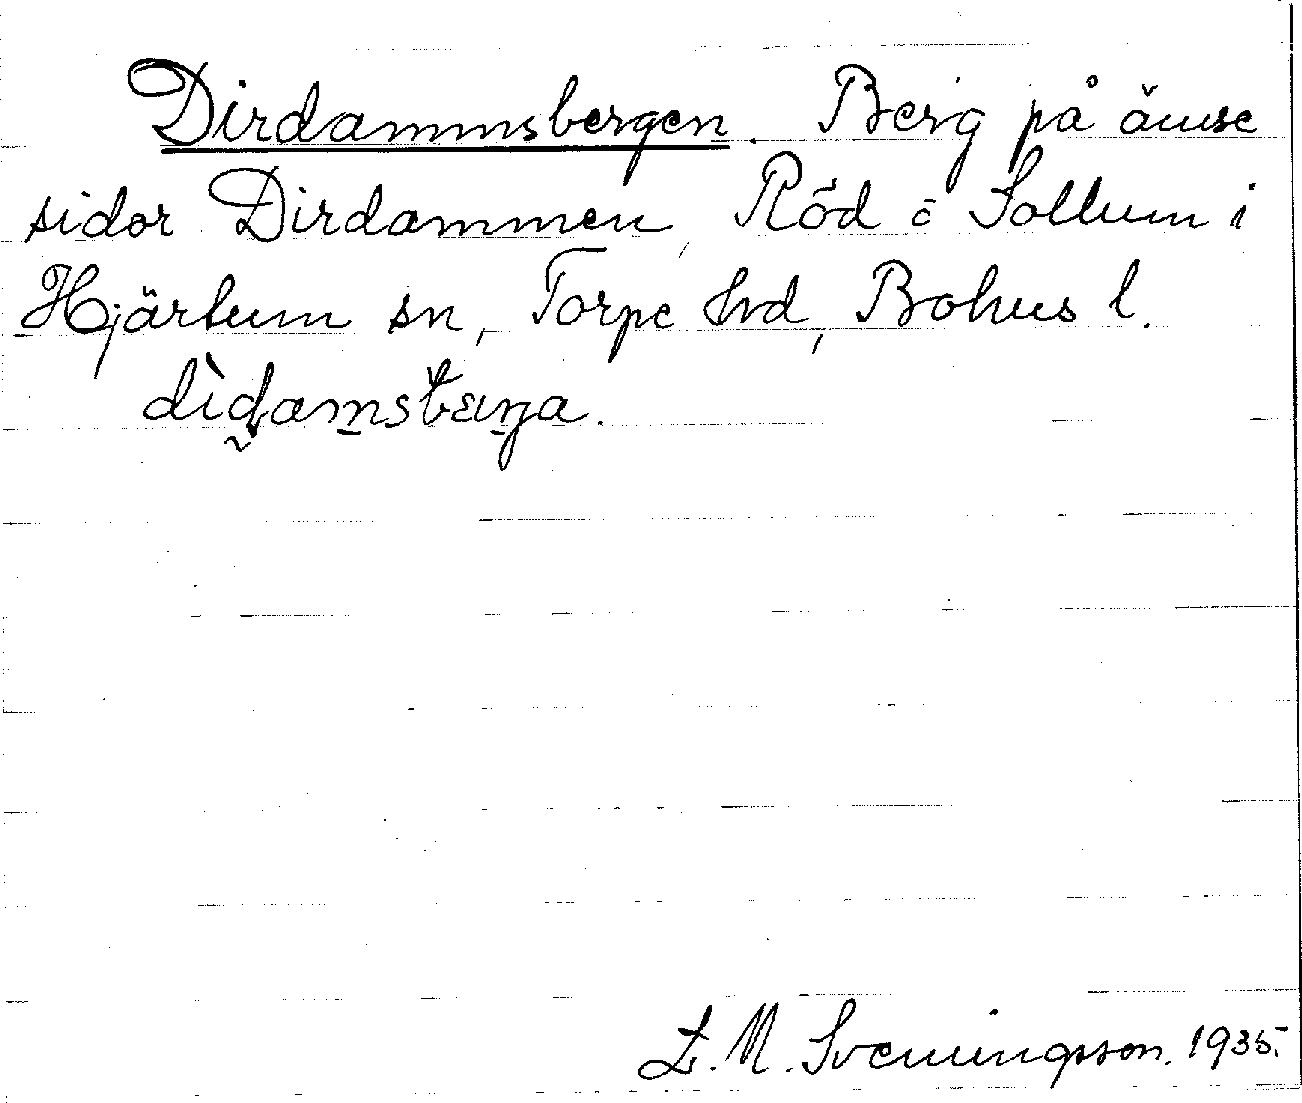 Dirdammsbergen. Berg på ömse
sidor Dirdammen, Röd o Sollum i
Hjärtum sn, Torpe hd, Bohus l.
L. M. Svenningsson. 1935.